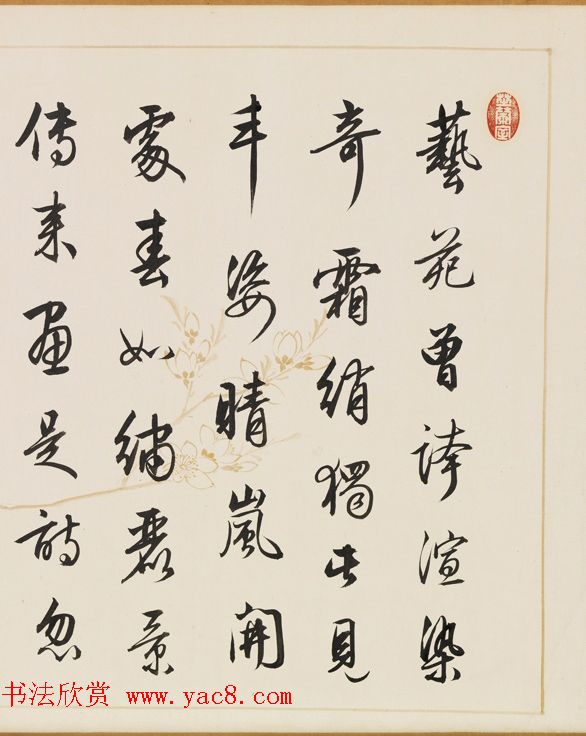 藝苑曾誇渲染
奇霜綃獨此見
丰姿晴嵐開
處春如繡麗景
傳來畫是詩忽
书法欣赏 www.yac8.com